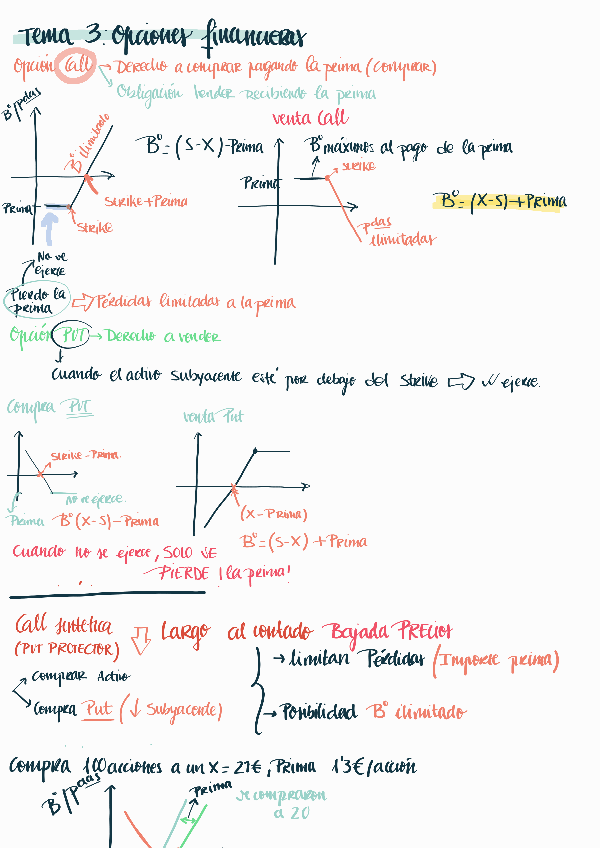 Tema 3: Opciones financieras
Opción Call → Derecho a comprar pagando la prima (comprar)
Obligación vender recibiendo la prima
Bº/pdas
venta Call
Bº ilimitado
Bº = (S-X)-Prima
Bº máximos al pago de la prima
strike
Prima
Bº = (X-S)+Prima
Strike+Prima
Prima
Strike
pdas
ilimitadas
No se
ejerce
Pierdo la
prima
⇨ Pérdidas limitadas a la prima
Opción PUT → Derecho a vender
Cuando el activo subyacente esté por debajo del strike ⇨ ejerce.
Compra PUT
venta Put
Strike-Prima.
No se ejerce.
Prima
Bº (X-S)-Prima
(X-Prima)
Bº = (S-X)+Prima
Cuando no se ejerce, SOLO SE
PIERDE ¡la prima!
Call sintética
(PUT PROTECTOR)
Largo al contado Bajada PRECIOS
→ limitan Pérdidas (Importe prima)
Comprar Activo
Compra Put (↓ Subyacente)
→ Posibilidad Bº ilimitado
Compra 100 acciones a un X = 21€, Prima 1'3€/acción
Bº/pdas
Prima
se compraron
a 20